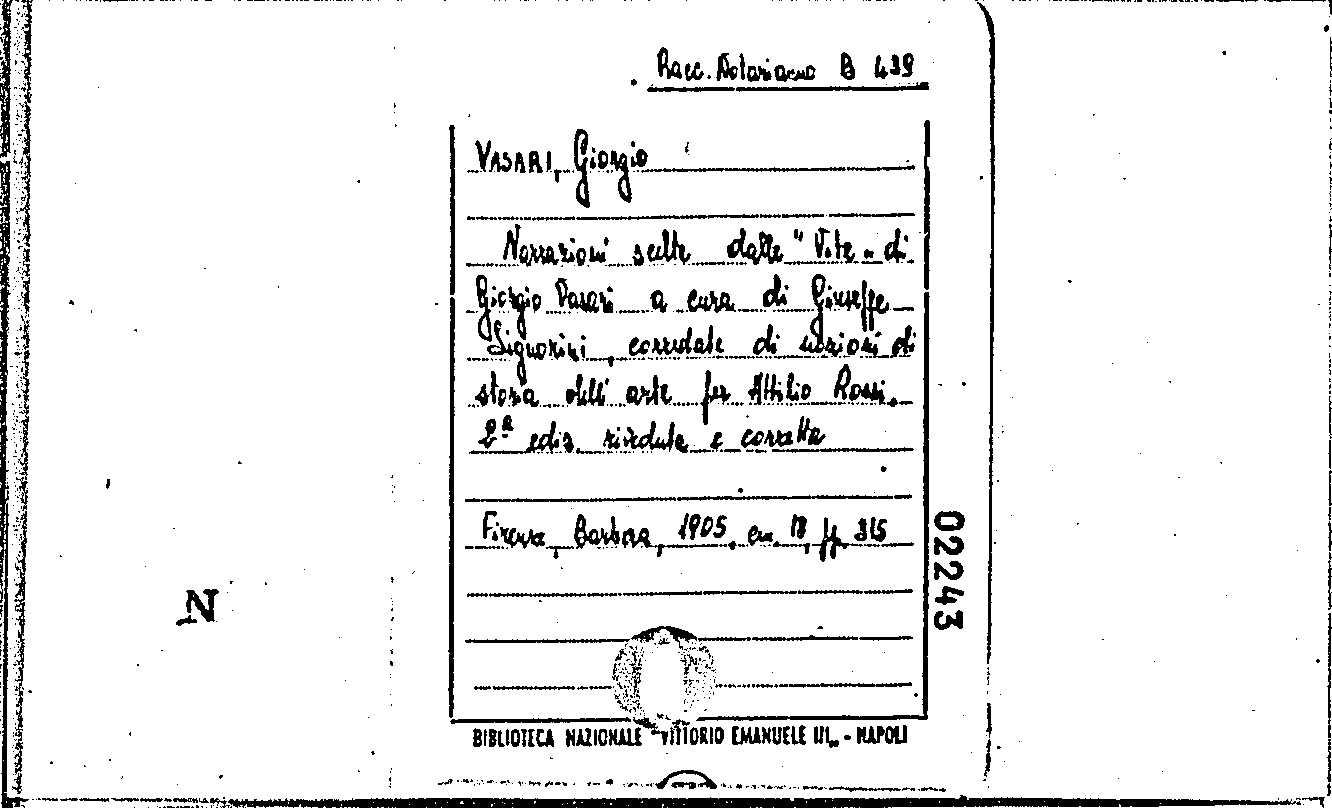 Racc. Notariacno B 439
VASARI, Giorgio
Narrazioni scelte dalle "Vite" di
Giorgio Vasari a cura di Giuseppe
Signorini, corredate di nozioni di
storia dell'arte per Attilio Rossi.
2ª ediz. riveduta e corretta
Firenze, Barbera, 1905, cm. 18, pp. 315
022243
N
BIBLIOTECA NAZIONALE "VITTORIO EMANUELE III„ - NAPOLI